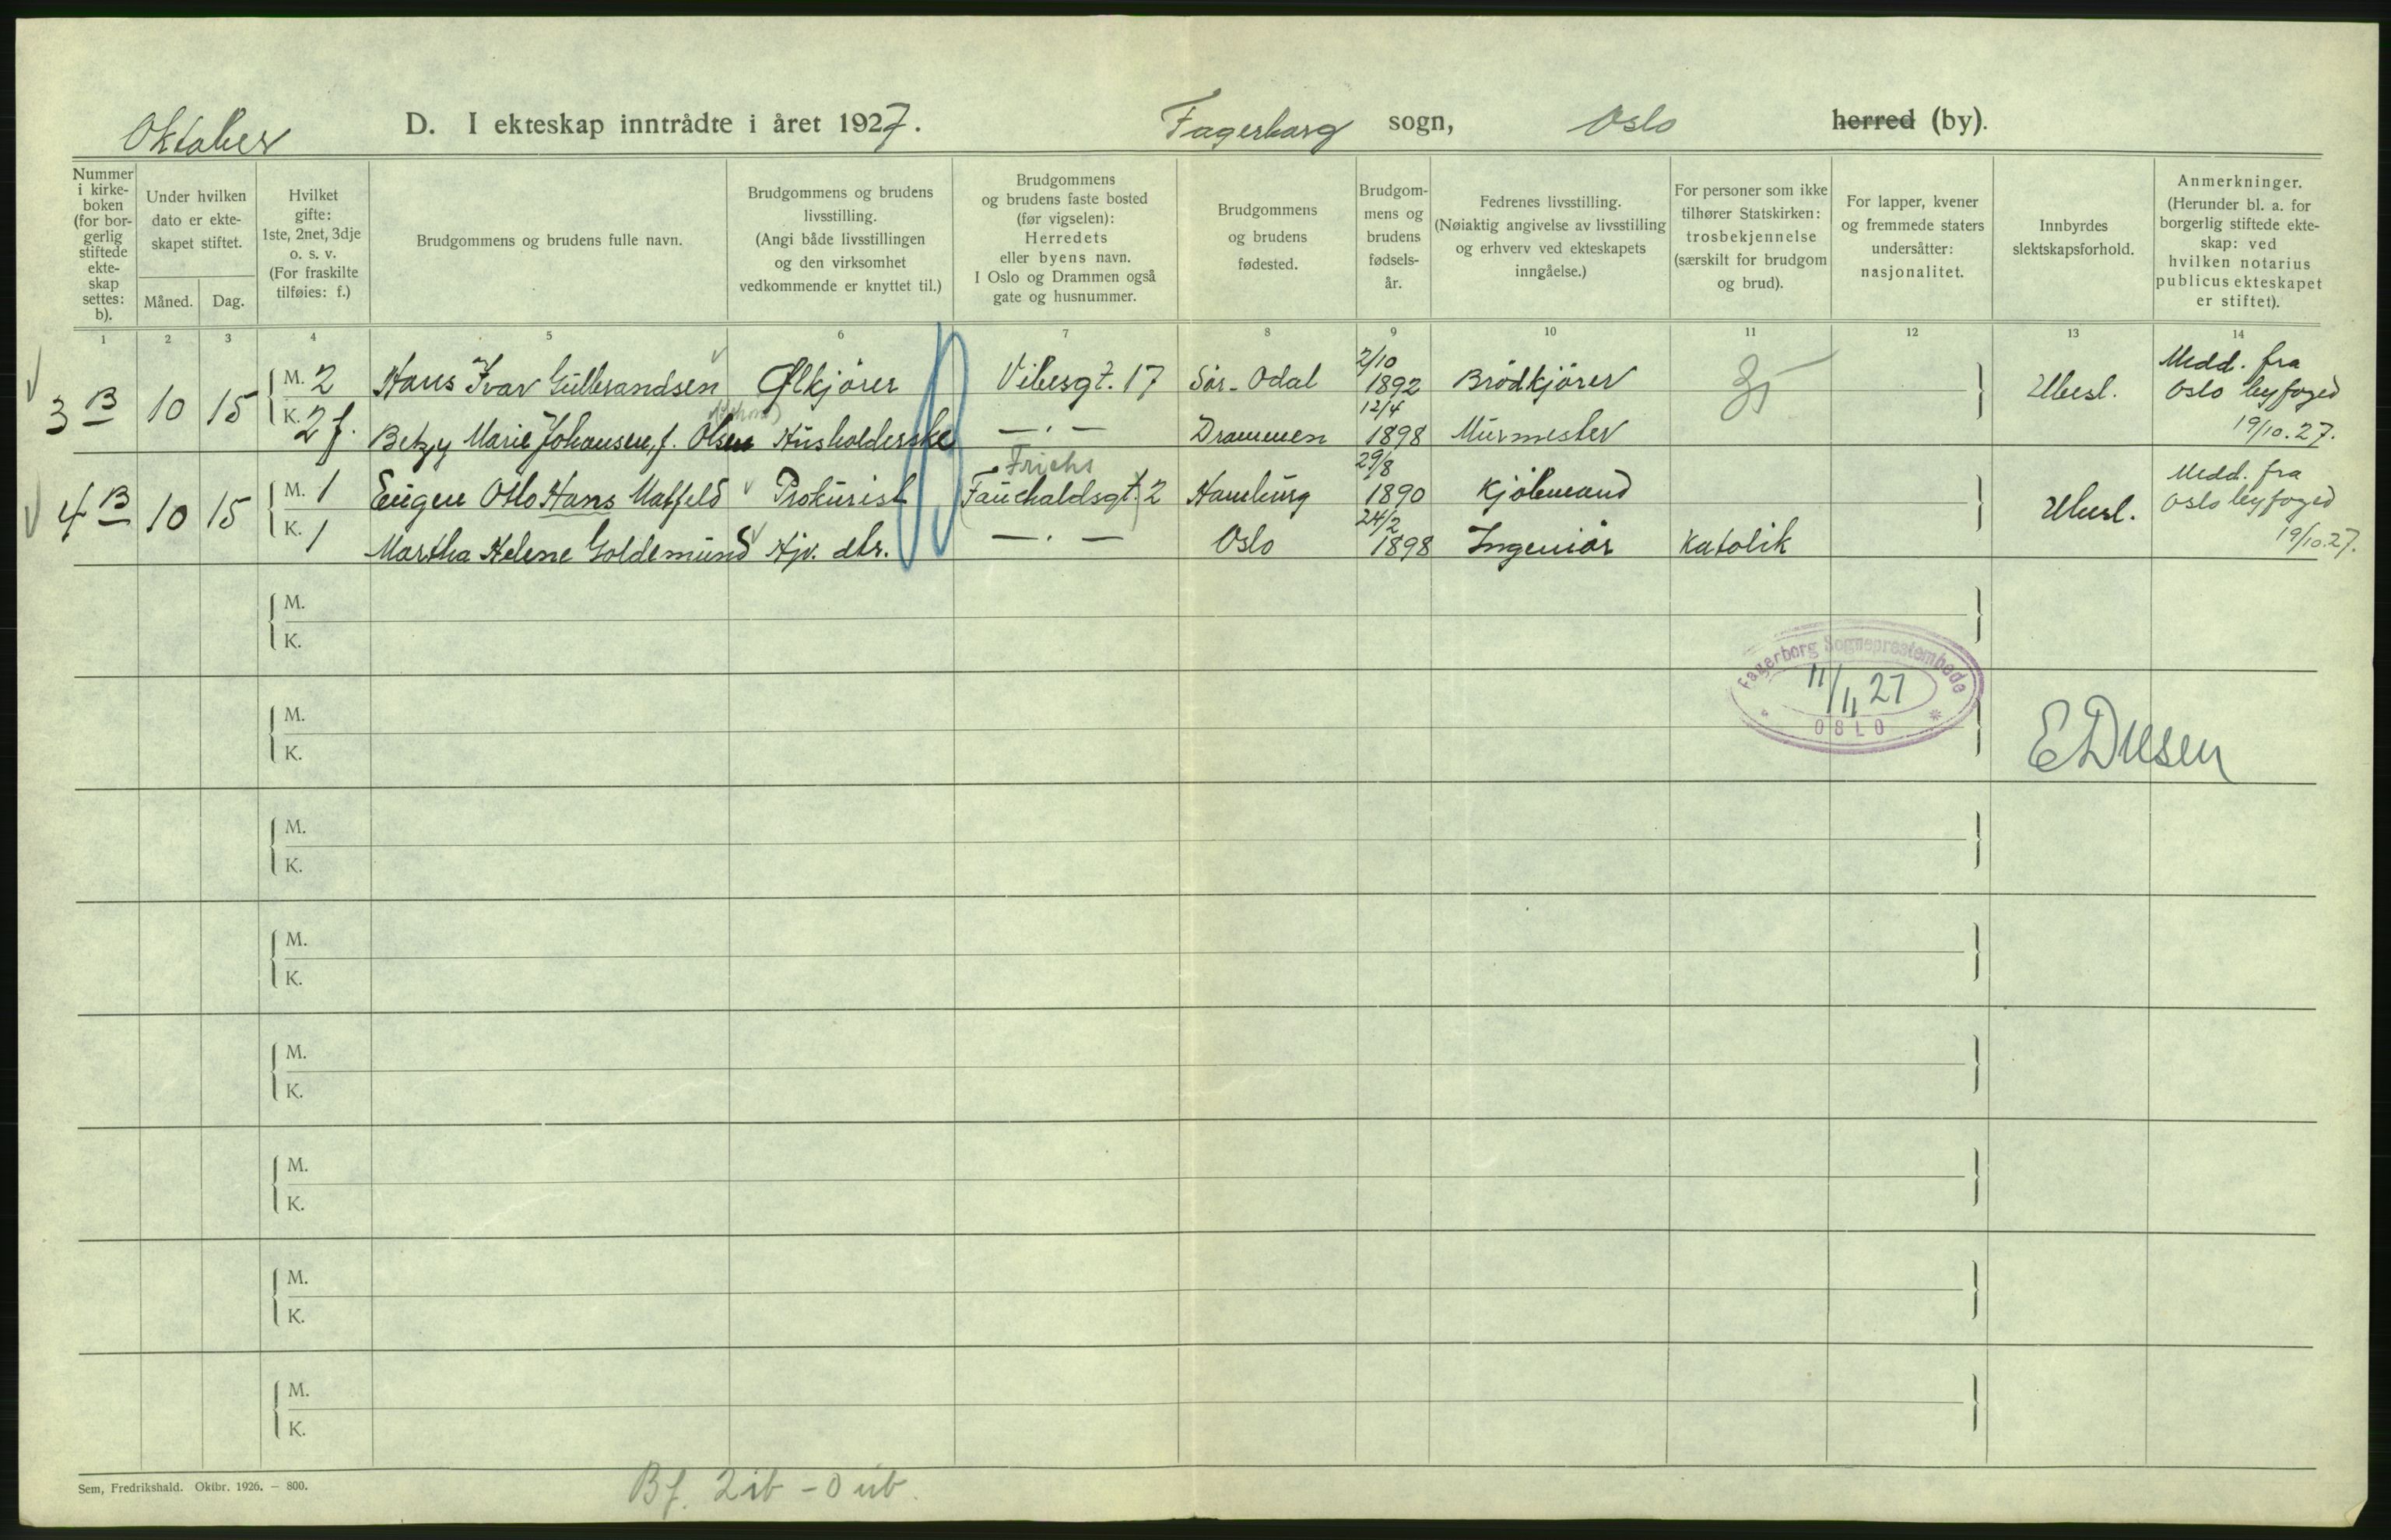 Oktober D. I ekteskap inntrådte i året 1927. Fagerborg sogn, Oslo herred (by).
Nummer i kirkeboken (for borgerlig stiftede ekteskap settes: b).
Under hvilken dato er ekteskapet stiftet.
Måned. Dag.
Hvilket gifte: 1ste, 2net, 3dje o. s. v. (For fraskilte tilføies: f.)
Brudgommens og brudens fulle navn.
Brudgommens og brudens livsstilling. (Angi både livsstillingen og den virksomhet vedkommende er knyttet til.)
Brudgommens og brudens faste bosted (før vigselen): Herredets eller byens navn. I Oslo og Drammen også gate og husnummer.
Brudgommens og brudens fødested.
Brudgommens og brudens fødselsår.
Fedrenes livsstilling. (Nøiaktig angivelse av livsstilling og erhverv ved ekteskapets inngåelse.)
For personer som ikke tilhører Statskirken: trosbekjennelse (særskilt for brudgom og brud).
For lapper, kvener og fremmede staters undersåtter: nasjonalitet.
Innbyrdes slektskapsforhold.
Anmerkninger. (Herunder bl. a. for borgerlig stiftede ekteskap: ved hvilken notarius publicus ekteskapet er stiftet).
1 2 3 4 5 6 7 8 9 10 11 12 13 14
3 B 10 15 M. 2 Hans Ivar Gulbrandsen Ølkjörer Vibesgt. 17 Sör-Odal 2/10 1892 Brödkjörer Ubesl. Medd. fra Oslo byfoged 19/10.27.
K. 2 f. Betzy Marie Johansen, f. Olsen Husholderske — . — Drammen 12/4 1898 Murmester
4 B 10 15 M. 1 Eugen Otto Hans Matfeld Prokurist Frichs (Fauchaldsgt.) 2 Hamburg 29/8 1890 Kjöbmand Ubesl. Medd. fra Oslo byfoged 19/10.27.
K. 1 Martha Helene Goldemund Hjv. dtr. — . — Oslo 24/2 1898 Ingeniör Katolik
M.
K.
Fagerborg Sogneprestembede
11/11 27
OSLO
M.
K.
E Dusen
M.
K.
M.
K.
M.
K.
M.
K.
M.
K.
M.
K.
Sem, Fredrikshald. Oktbr. 1926. — 800.
Bf. 2 ib - 0 ub.